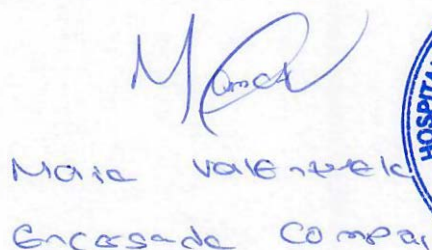 Maria Valenzuela
Encargada Compar
HOSPITA